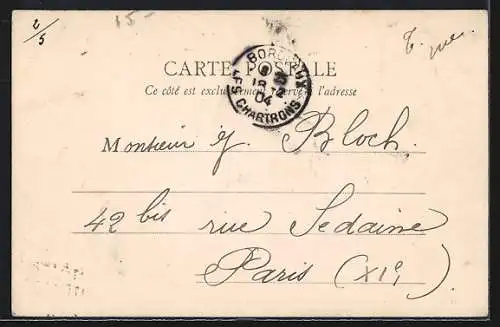 2/5
15-
CARTE POSTALE
Ce côté est exclusivement réservé à l'adresse
BORDEAUX
LES CHARTRONS
04
Monsieur G. Bloch
42 bis rue Sedaine
Paris (XIe)